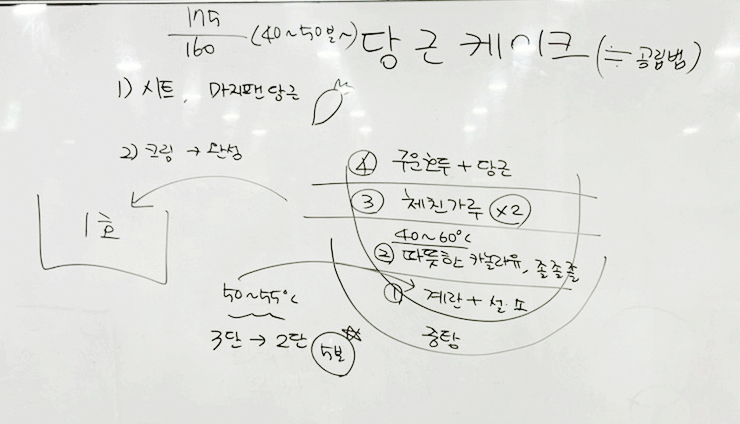 175
160 (40~50분~) 당근케이크 (≒ 공립법)
1) 시트, 마지팬당근
2) 크림 → 완성
1호
④ 구운호두 + 당근
③ 체친가루 ×2
40~60°C
② 따뜻한 카놀라유, 졸졸졸
① 계란 + 설.소
중탕
50~55°C
3단 → 2단 5분